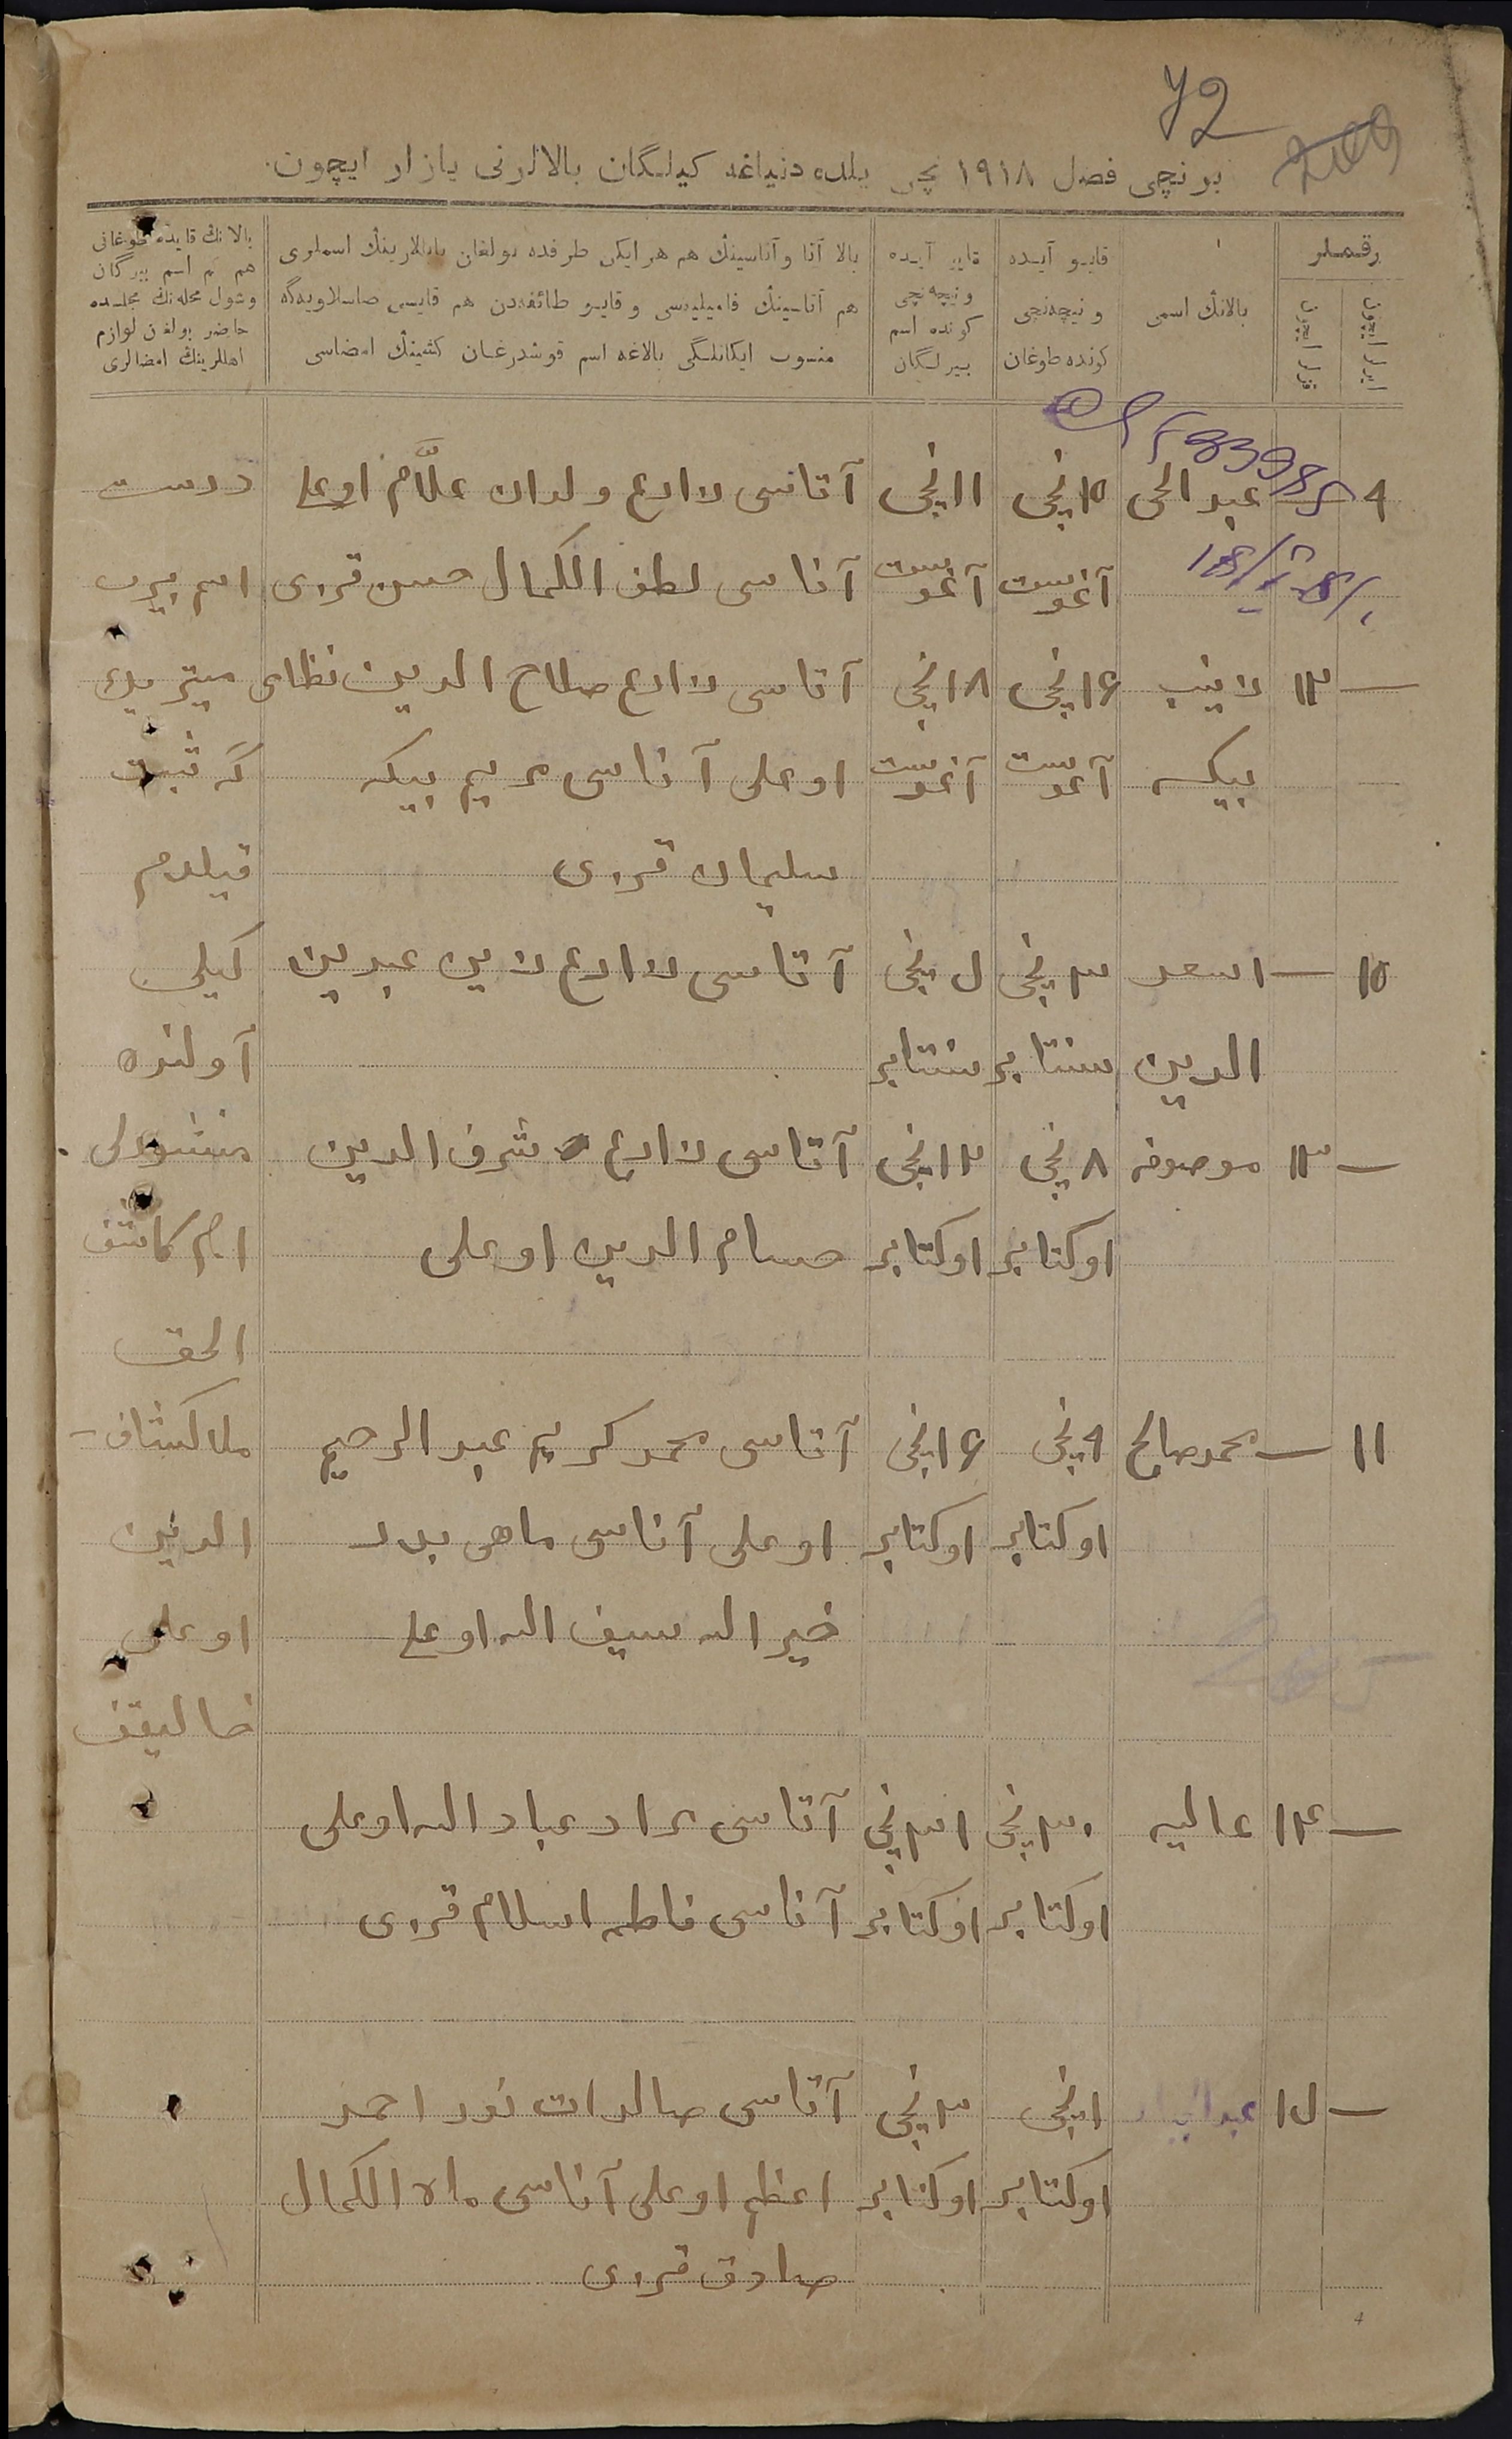 72
برنچی فصل ۱۹۱۸ نچی یلده دنیاغه کیلگان بالالرنی یازار ایچون.
رقملر
ایرلر ایچون
قزلر ایچون
بالانڭ اسمی
قایو آیده
و نیچه‌نچی
کونده طوغان
قایو آیده
و نیچه‌نچی
کونده اسم
بیرلگان
بالا آتا و آناسینڭ هم هر ایکی طرفده بولغان بابالارینڭ اسملری
هم آتاسینڭ فامیلیه‌سی و قایو طائفه‌دن هم قایسی صاسلاویه‌گه
منسوب ایکانلگی بالاغه اسم قوشدرغان کشینڭ امضاسی
بالانڭ قایده طوغانی
هم کم اسم بیرگان
وشول محله‌نڭ مجلسده
حاضر بولغان لوازم
اهللرینڭ امضالری
۹ — عبد الحی ۱۵ نچی ۱۱ نچی آتاسی زارع ولدان علاّم اوغلی درست
آغوست آغوست آناسی لطف الکمال حسن قزی اسم بیرب
— ۱۲ زینب ۱۶ نچی ۱۸ نچی آتاسی زارع صلاح الدین نظامی میتریک
بیکه آغوست آغوست اوغلی آناسی مریم بیکه گه ثبت
سلیمان قزی قیلدم
۱۰ — اسعد ۳ نچی ۷ نچی آتاسی زارع زین عبدین کیلی
الدین سنتابر سنتابر آولنده
— ۱۳ موصوفه ۸ نچی ۱۲ نچی آتاسی زارع شرف الدین
اوکتابر اوکتابر حسام الدین اوغلی امام کاشف
الحق
۱۱ — محمد صالح ۹ نچی ۱۶ نچی آتاسی محمد کریم عبد الرحیم ملا کشاف
اوکتابر اوکتابر اوغلی آناسی ماهی بدر الدین
خیر الله سیف الله اوغلی اوغلی
خالیقف
— ۱۴ عالیه ۳۰ نچی ۳۱ نچی آتاسی مراد عباد الله اوغلی
اوکتابر اوکتابر آناسی فاطمه اسلام قزی
— ۱۵ ۱ نچی ۳ نچی آتاسی صالدات نور احمد
اوکتابر اوکتابر اعظم اوغلی آناسی ماه الکمال
صادق قزی